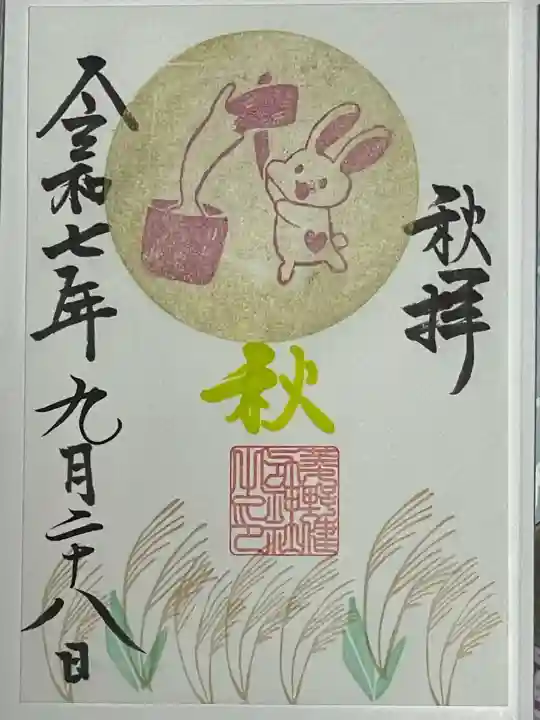 秋拝
秋
令和七年九月二十八日